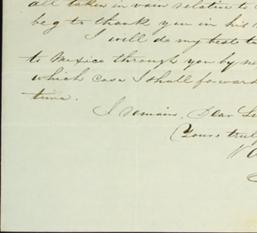 all taken in vain relative to
beg to thank you in his
I will do my best to
to Mexico through you by
which case I shall forward
time.
I remain, Dear
Yours truly